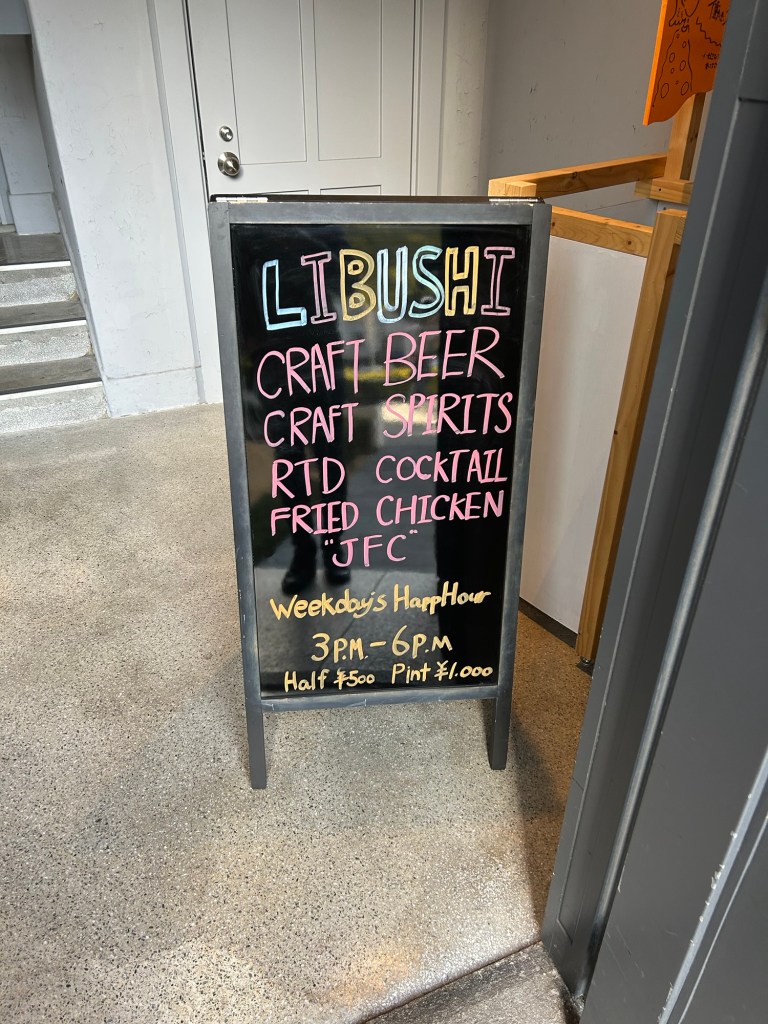 LIBUSHI
CRAFT BEER
CRAFT SPIRITS
RTD COCKTAIL
FRIED CHICKEN
"JFC"
Weekday's HappHour
3P.M. - 6P.M
Half ¥500 Pint ¥1.000